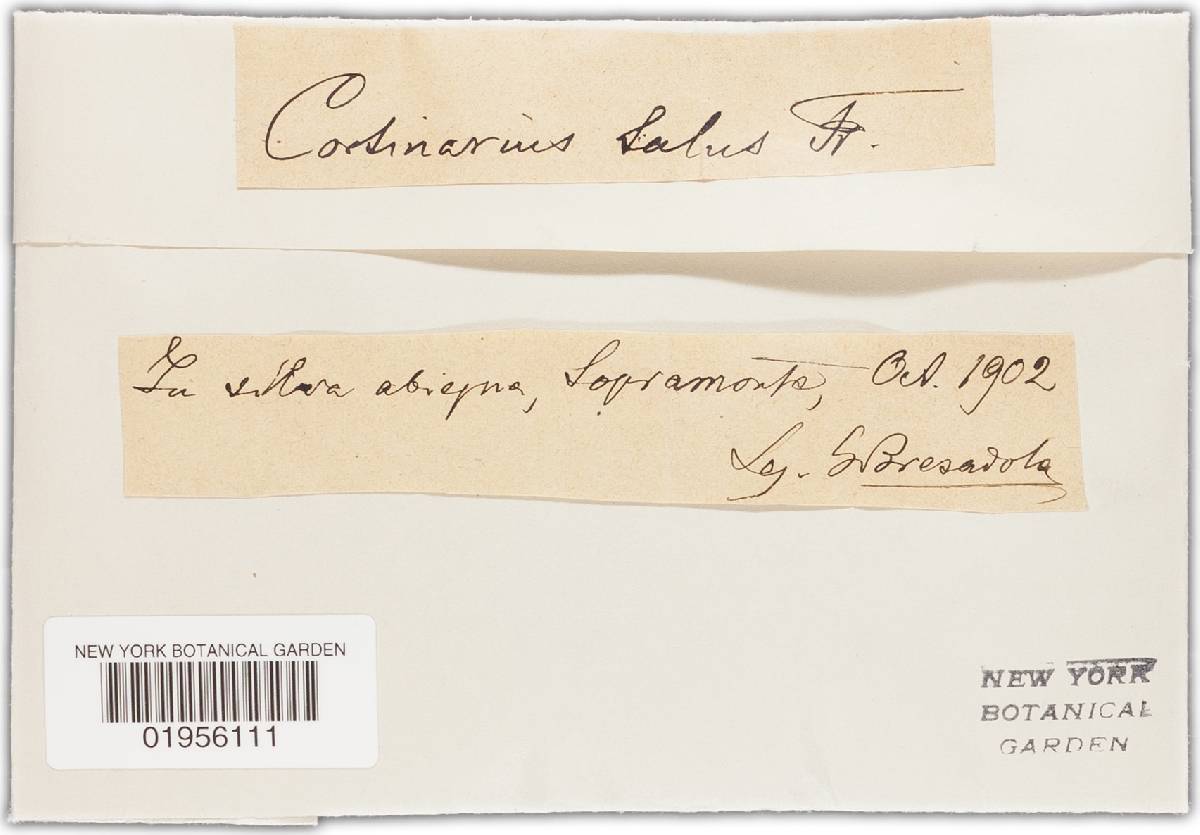 Cortinarius talus Fr.
In silva abiegna, Sopramonte, Oct. 1902
Leg. GBresadola
NEW YORK BOTANICAL GARDEN
01956111
NEW YORK
BOTANICAL
GARDEN